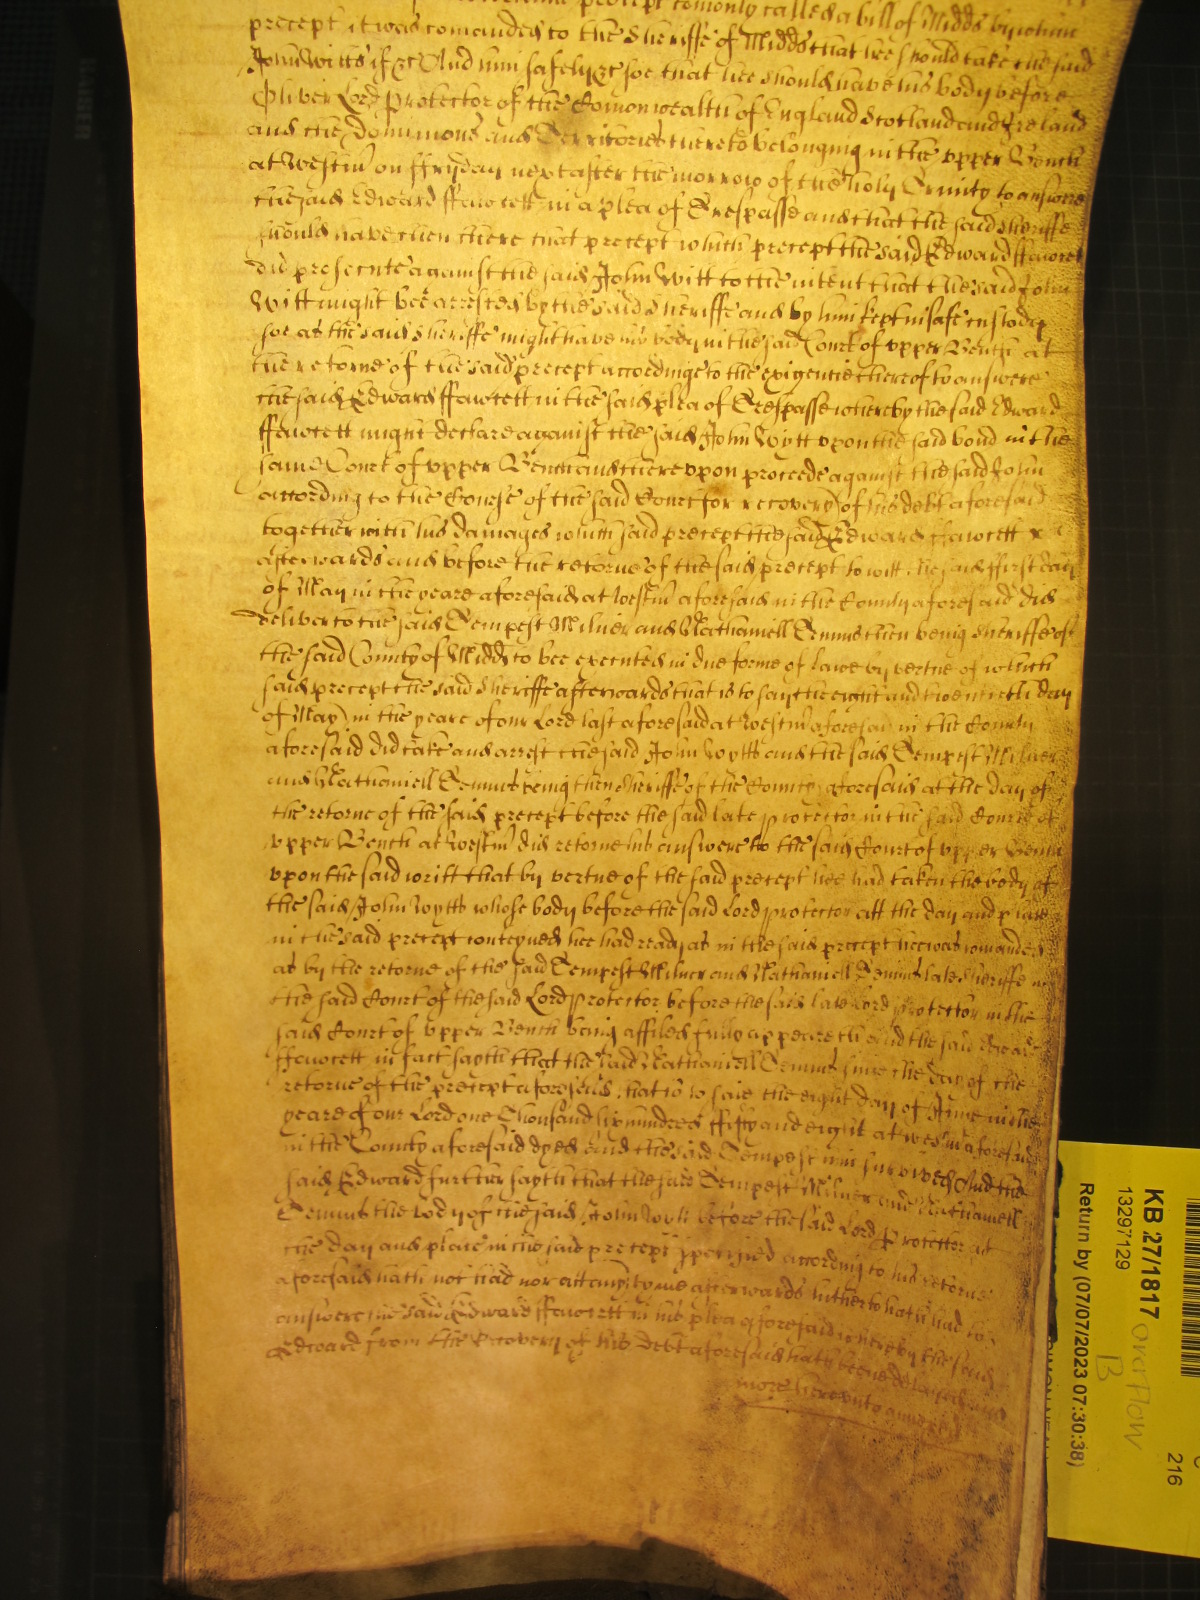 precept comonly called a bill of Midds by which
precept it was comanded to the Sheriffe of Midds that hee should take the said
John Witts if &c And him safely &c soe that hee should have his body before
Oliver Lord Protector of the Comonwealth of England Scotland and Ireland
and the Dominions and Territories thereto belonging in the upper Bench
at Westm on ffryday next after the morrow of the holy Trinity to answere
the said Edward ffawcett in a plea of Trespasse and that the said Sheriffe
should have then there that precept which precept the said Edward ffawcett
did prosecute against the said John Witt to the intent that the said John
Witt might bee arrested by the said Sheriffe and by him kept in safe custody
soe as the said Sheriffe might have his body in the said Court of upper Bench at
the retorne of the said precept accordinge to the exigencie thereof to answere
the said Edward ffawcett in the said plea of Trespasse whereby the said Edward
ffawcett might declare against the said John Wytt upon the said bond in the
same Court of upper Bench and thereupon proceede against the said John
according to the Course of the said Court for recovery of his debt aforesaid
together with his damages which said precept the said Edward ffawcett
afterwards and before the retorne of the said precept to witt the said ffirst day
of May in the yeare aforesaid at Westm aforesaid in the County aforesaid did
deliver to the said Tempest Milner and Nathaniell Temms then being Sheriffe of
the said County of Midds to bee executed in due forme of lawe by vertue of which
said precept the said Sheriffe afterwards that is to say the eight and twentieth day
of May in the yeare of our Lord last aforesaid at Westm aforesaid in the County
aforesaid did take and arrest the said John Wytt and the said Tempest Milner
and Nathaniell Temms being then Sheriffe of the County aforesaid at the day of
the retorne of the said precept before the said late Protector in the said Court of
upper Bench at Westm did retorne his answere to the said Court of upper Bench
upon the said writt that by vertue of the said precept hee had taken the body of
the said John Wytt whose body before the said Lord Protector att the day and place
in the said precept conteyned hee had ready as in the said precept hee was comanded
as by the retorne of the said Tempest Milner and Nathaniell Temms late Sheriffe
the said Court of the said Lord Protector before the said late Lord Protector in the
said Court of upper Bench being affiled fully appeareth And the said Edward
ffawcett in fact sayth that the said Nathaniell Temms since the day of the
retorne of the precept aforesaid that is to saie the eight day of June in the
yeare of our Lord one Thousand six hundred ffifty and eight at Westm aforesaid
in the County aforesaid dyed and the said Tempest him survived And the
said Edward further sayth that the said Tempest Milner and Nathaniell
Temms the body of the said John Wytt before the said Lord Protector at
the day and place in the said precept specified according to his retorne
aforesaid hath not had nor att any tyme afterwards hitherto hath had to
answere the said Edward ffawcett in the plea aforesaid whereby the said
Edward from the Recovery of his debt aforesaid hath beene delayed
more hereunto
KB 27/1817
13297129
Return by (07/07/2023 07:30:38)
overflow
B
216